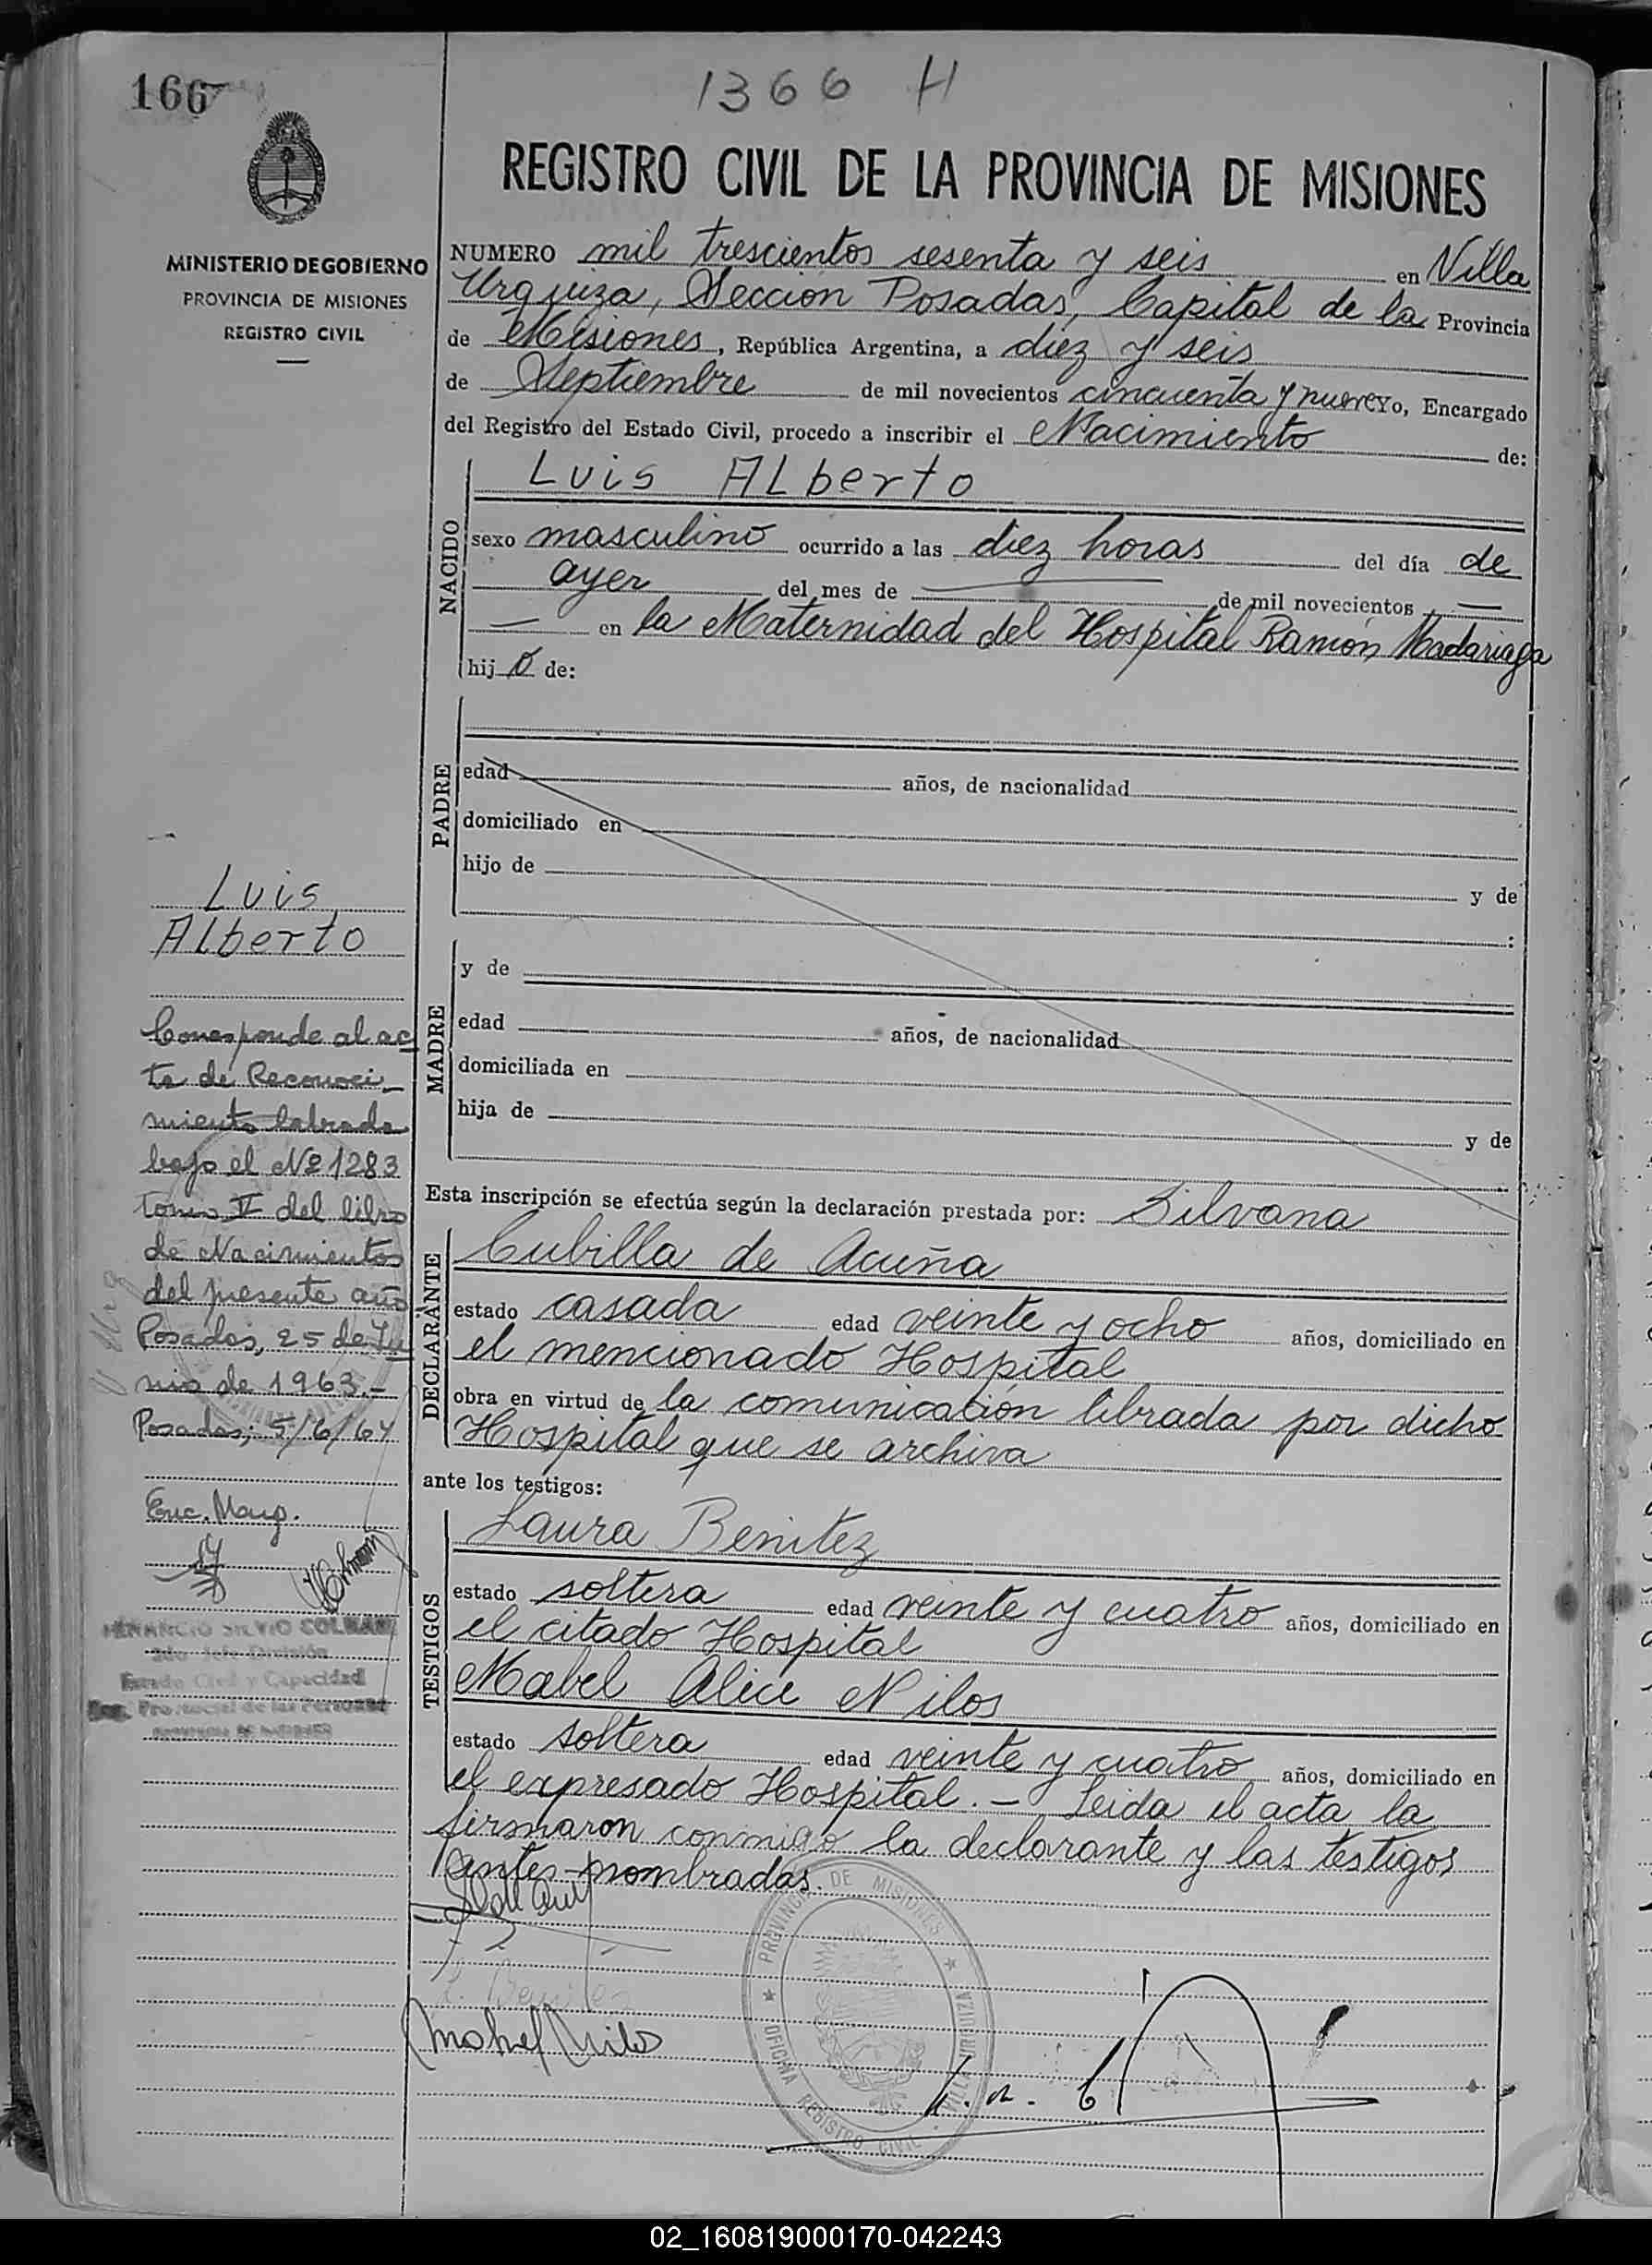 166
1366 H
REGISTRO CIVIL DE LA PROVINCIA DE MISIONES
MINISTERIO DE GOBIERNO
PROVINCIA DE MISIONES
REGISTRO CIVIL
NUMERO mil trescientos sesenta y seis en Villa
Urquiza, Sección Posadas, Capital de la Provincia
de Misiones, República Argentina, a diez y seis
de Septiembre de mil novecientos cincuenta y nueve yo, Encargado
del Registro del Estado Civil, procedo a inscribir el Nacimiento de:
NACIDO
Luis Alberto
sexo masculino ocurrido a las diez horas del día de
ayer del mes de — de mil novecientos —
— en la Maternidad del Hospital Ramón Madariaga
hijo de:
PADRE
edad años, de nacionalidad
domiciliado en
hijo de y de
:
MADRE
y de
edad años, de nacionalidad
domiciliada en
hija de y de
Esta inscripción se efectúa según la declaración prestada por: Silvana
DECLARANTE
Cubilla de Acuña
estado casada edad veinte y ocho años, domiciliado en
el mencionado Hospital
obra en virtud de la comunicación librada por dicho
Hospital que se archiva
ante los testigos:
TESTIGOS
Laura Benitez
estado soltera edad veinte y cuatro años, domiciliado en
el citado Hospital
Mabel Alice Nilos
estado soltera edad veinte y cuatro años, domiciliado en
el expresado Hospital.- Leida el acta la
firmaron conmigo la declarante y las testigos
antes nombradas.
Luis
Alberto
Corresponde al ac
ta de Reconoci-
miento labrada
bajo el Nº 1283
tomo II del libro
de Nacimientos
del presente año
Posadas, 25 de Ju
nio de 1963.-
Posadas, 5/6/64
Enc. Marg.
VENANCIO SILVIO COLMAN
2do Jefe División
Estado Civil y Capacidad
Reg. Provincial de las Personas
PROVINCIA DE MISIONES
L. Benitez
Mabel Nilos
PROVINCIA DE MISIONES
OFICINA REGISTRO CIVIL
VILLA URQUIZA
02_160819000170-042243